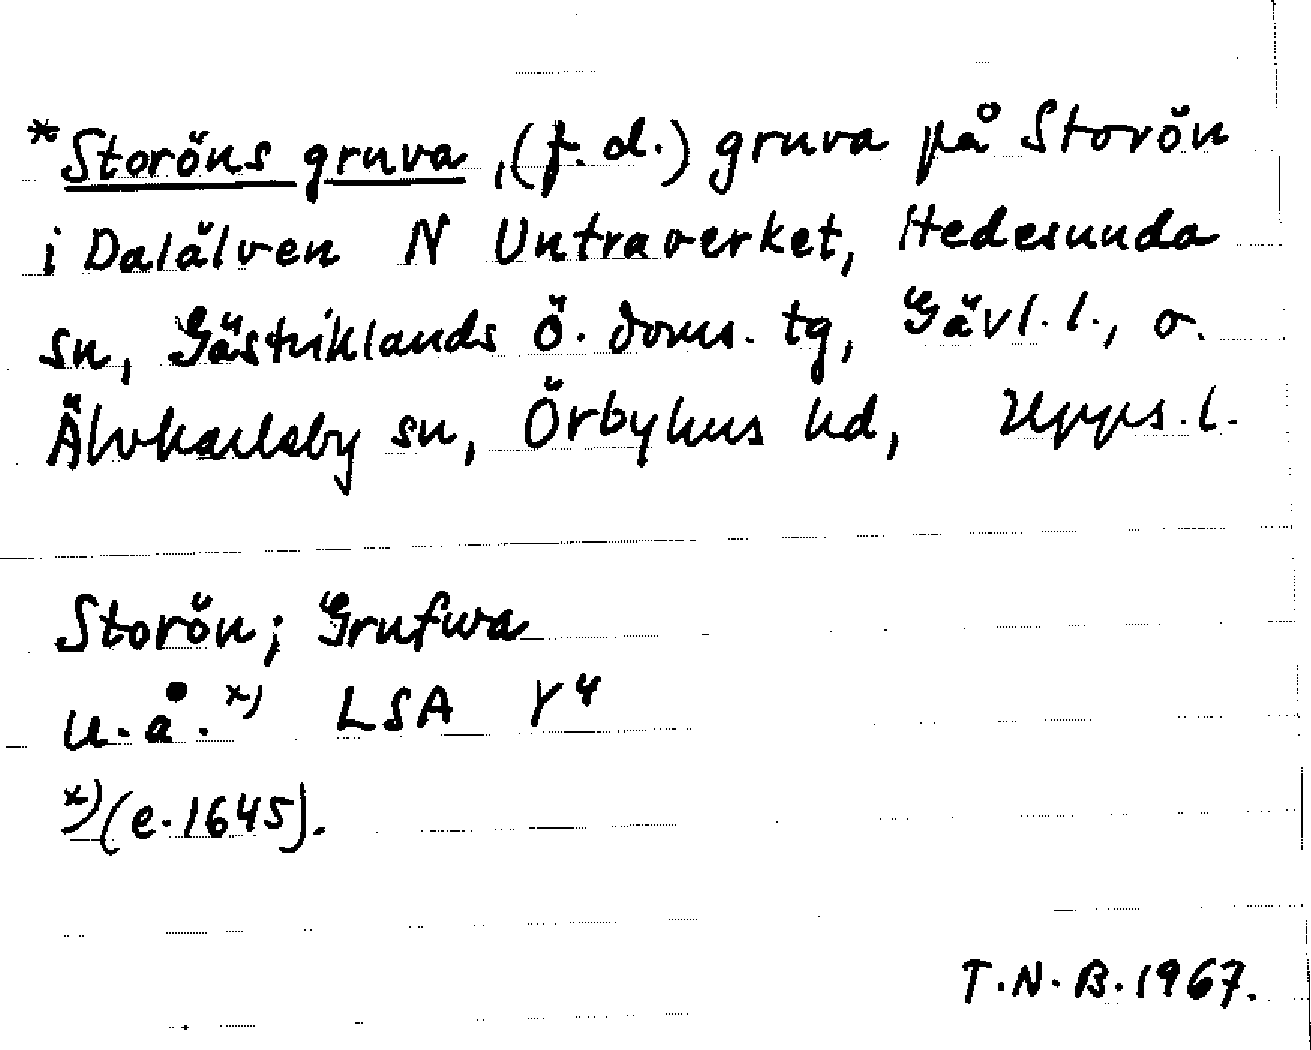 *Storöns gruva, (f.d.) gruva på Storön
i Dalälven N Untraverket, Hedesunda
sn, Gästriklands ö. doms. tg, Gävl. l., o.
Älvkarleby sn, Örbyhus hd, Upps. l.
Storön; Grufwa
u.å. x) LSA Y4
x) (e. 1645).
T.N.B. 1967.